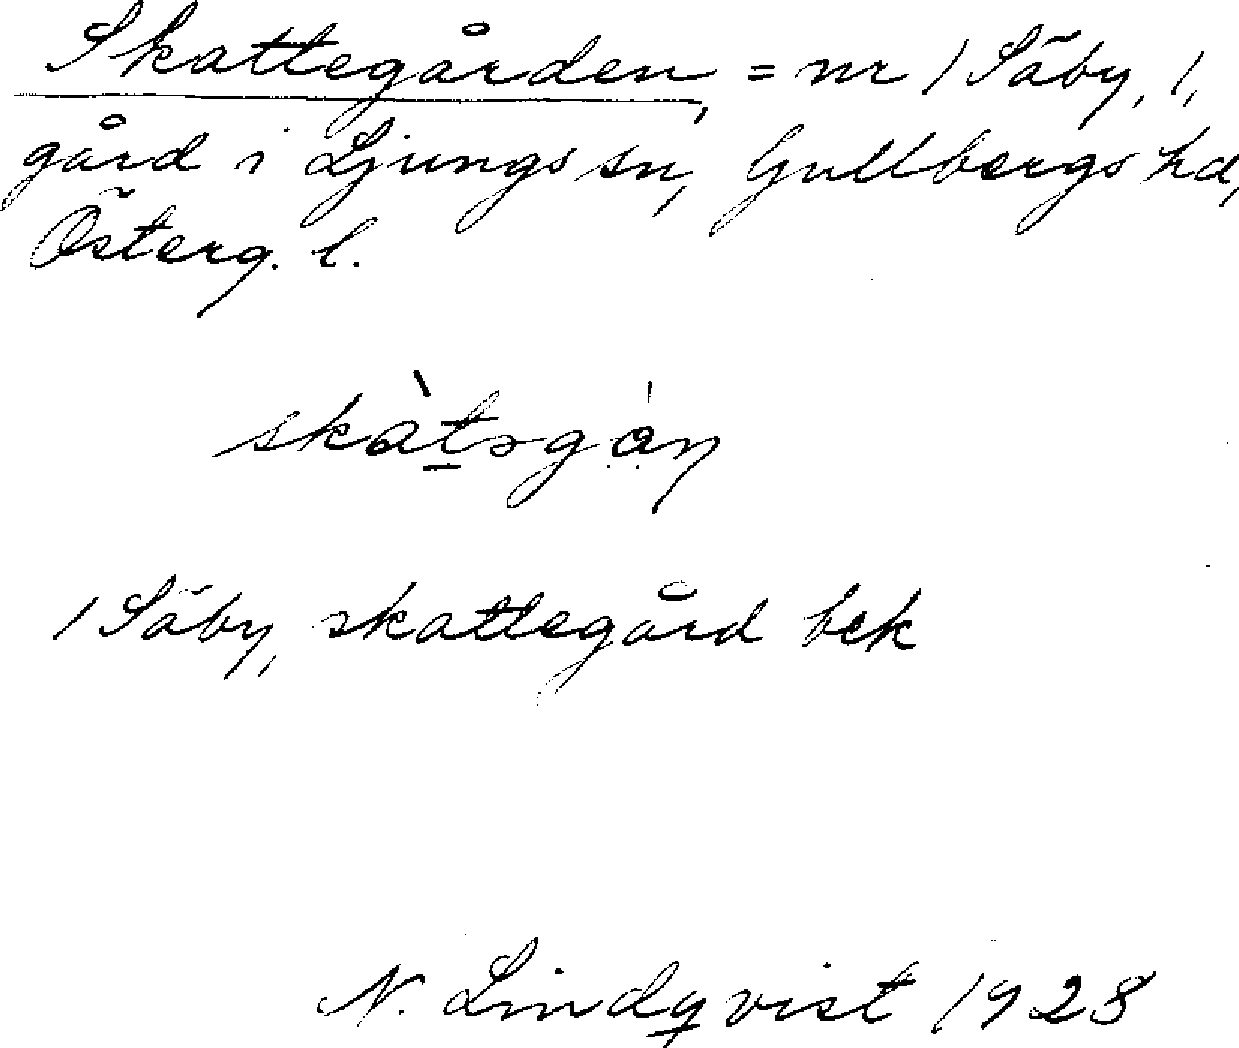 Skattegården, = nr 1 Säby, 1,
gård i Ljungs sn, Gullbergs hd,
Österg. l.
skàt̲əgȧ́ṇ
1 Säby, skattegård bek
N. Lindqvist 1928